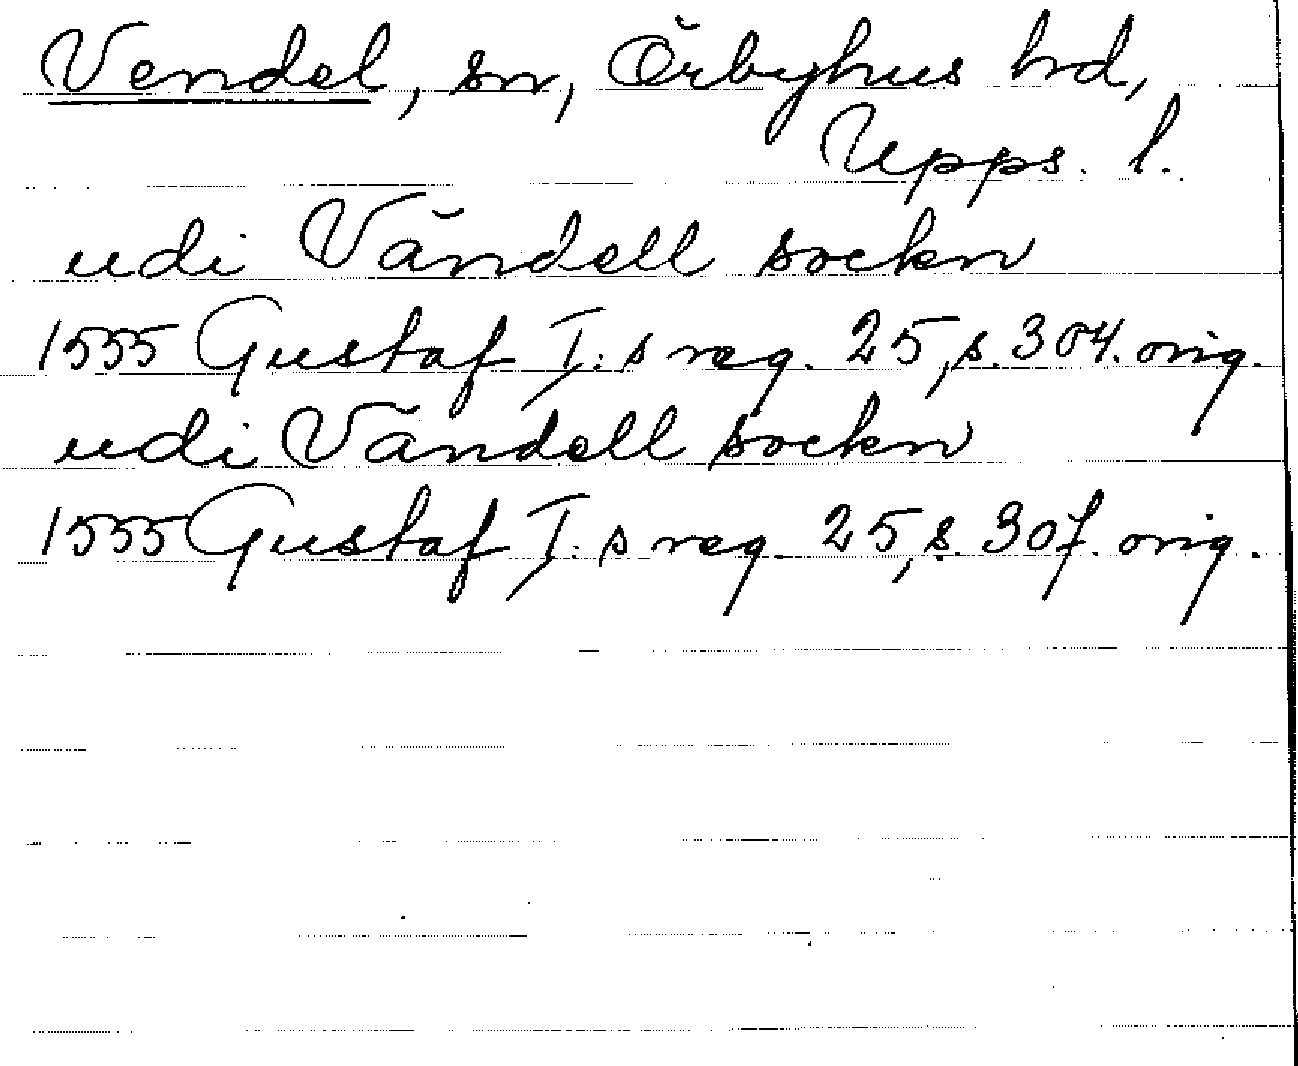 Vendel, sn, Örbyhus hrd,
Upps. l.
udi Vändell sockn
1555 Gustaf I:s reg. 25, s. 304. orig.
udi Vändell sockn
1555 Gustaf I:s reg. 25, s. 307. orig.